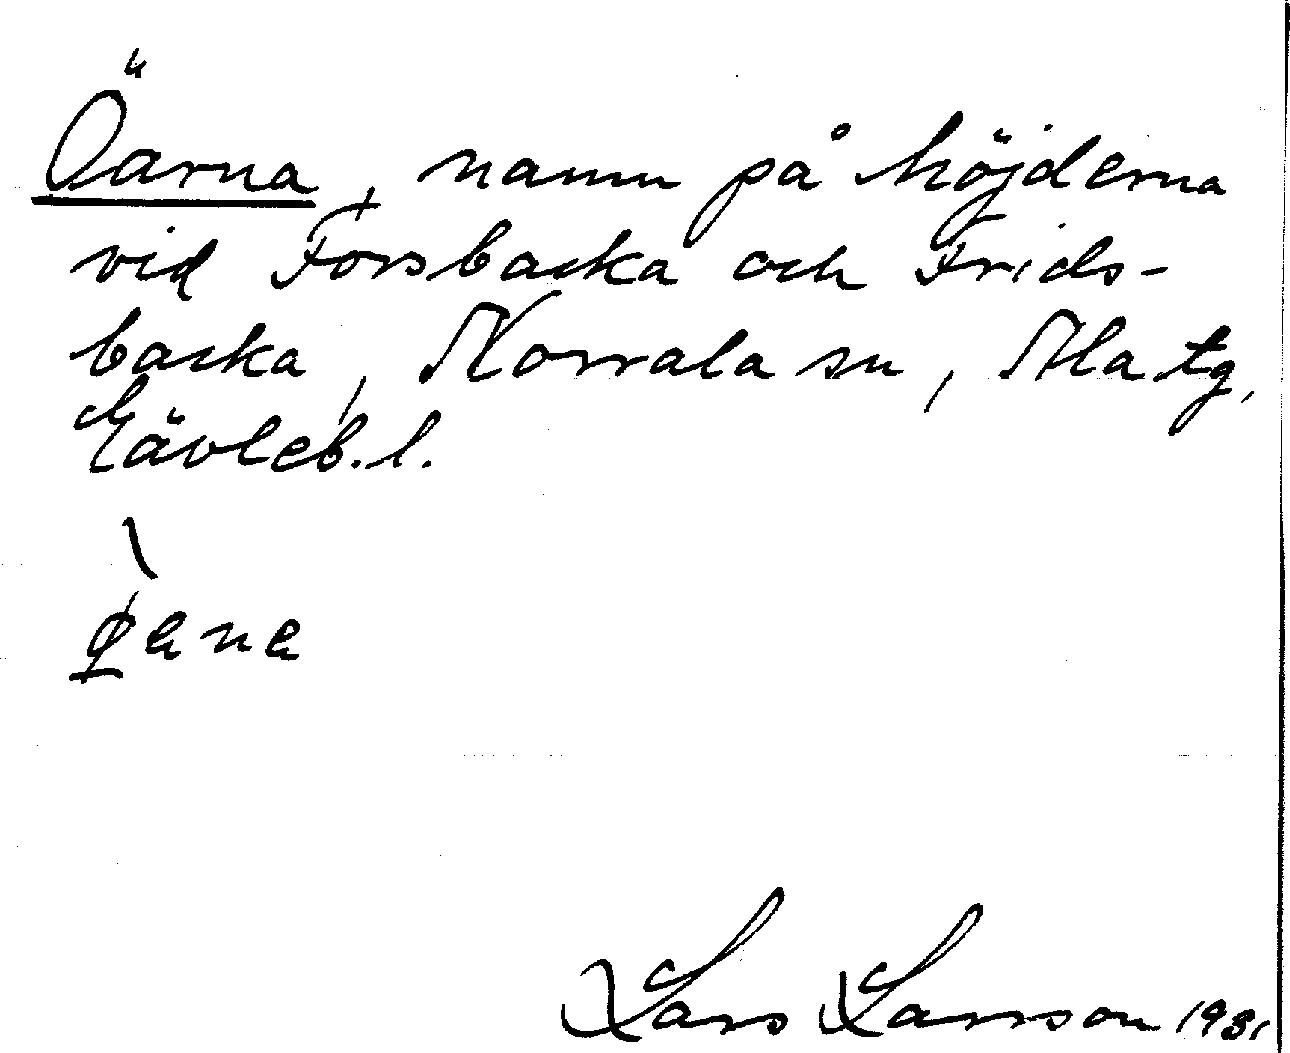 Öarna, namn på höjderna
vid Forsbacka och Frids-
backa, Norrala sn, Ala tg,
Gävleb. l.
Lars Larsson 1931